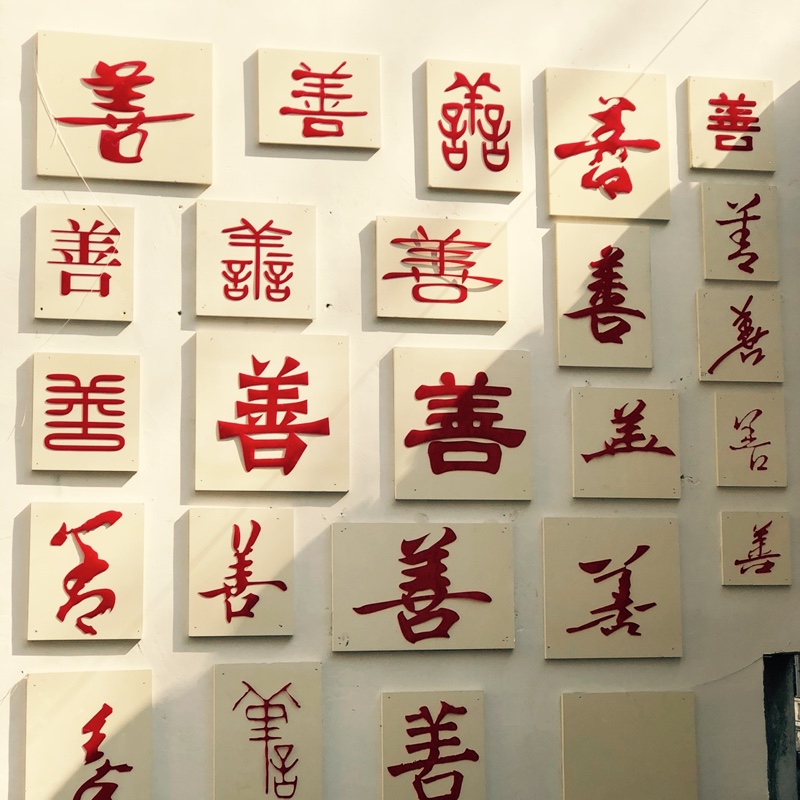 善 善 善 善 善
善 善 善 善 善
善 善 善 善 善
善 善 善 善 善
善 善 善 善
善